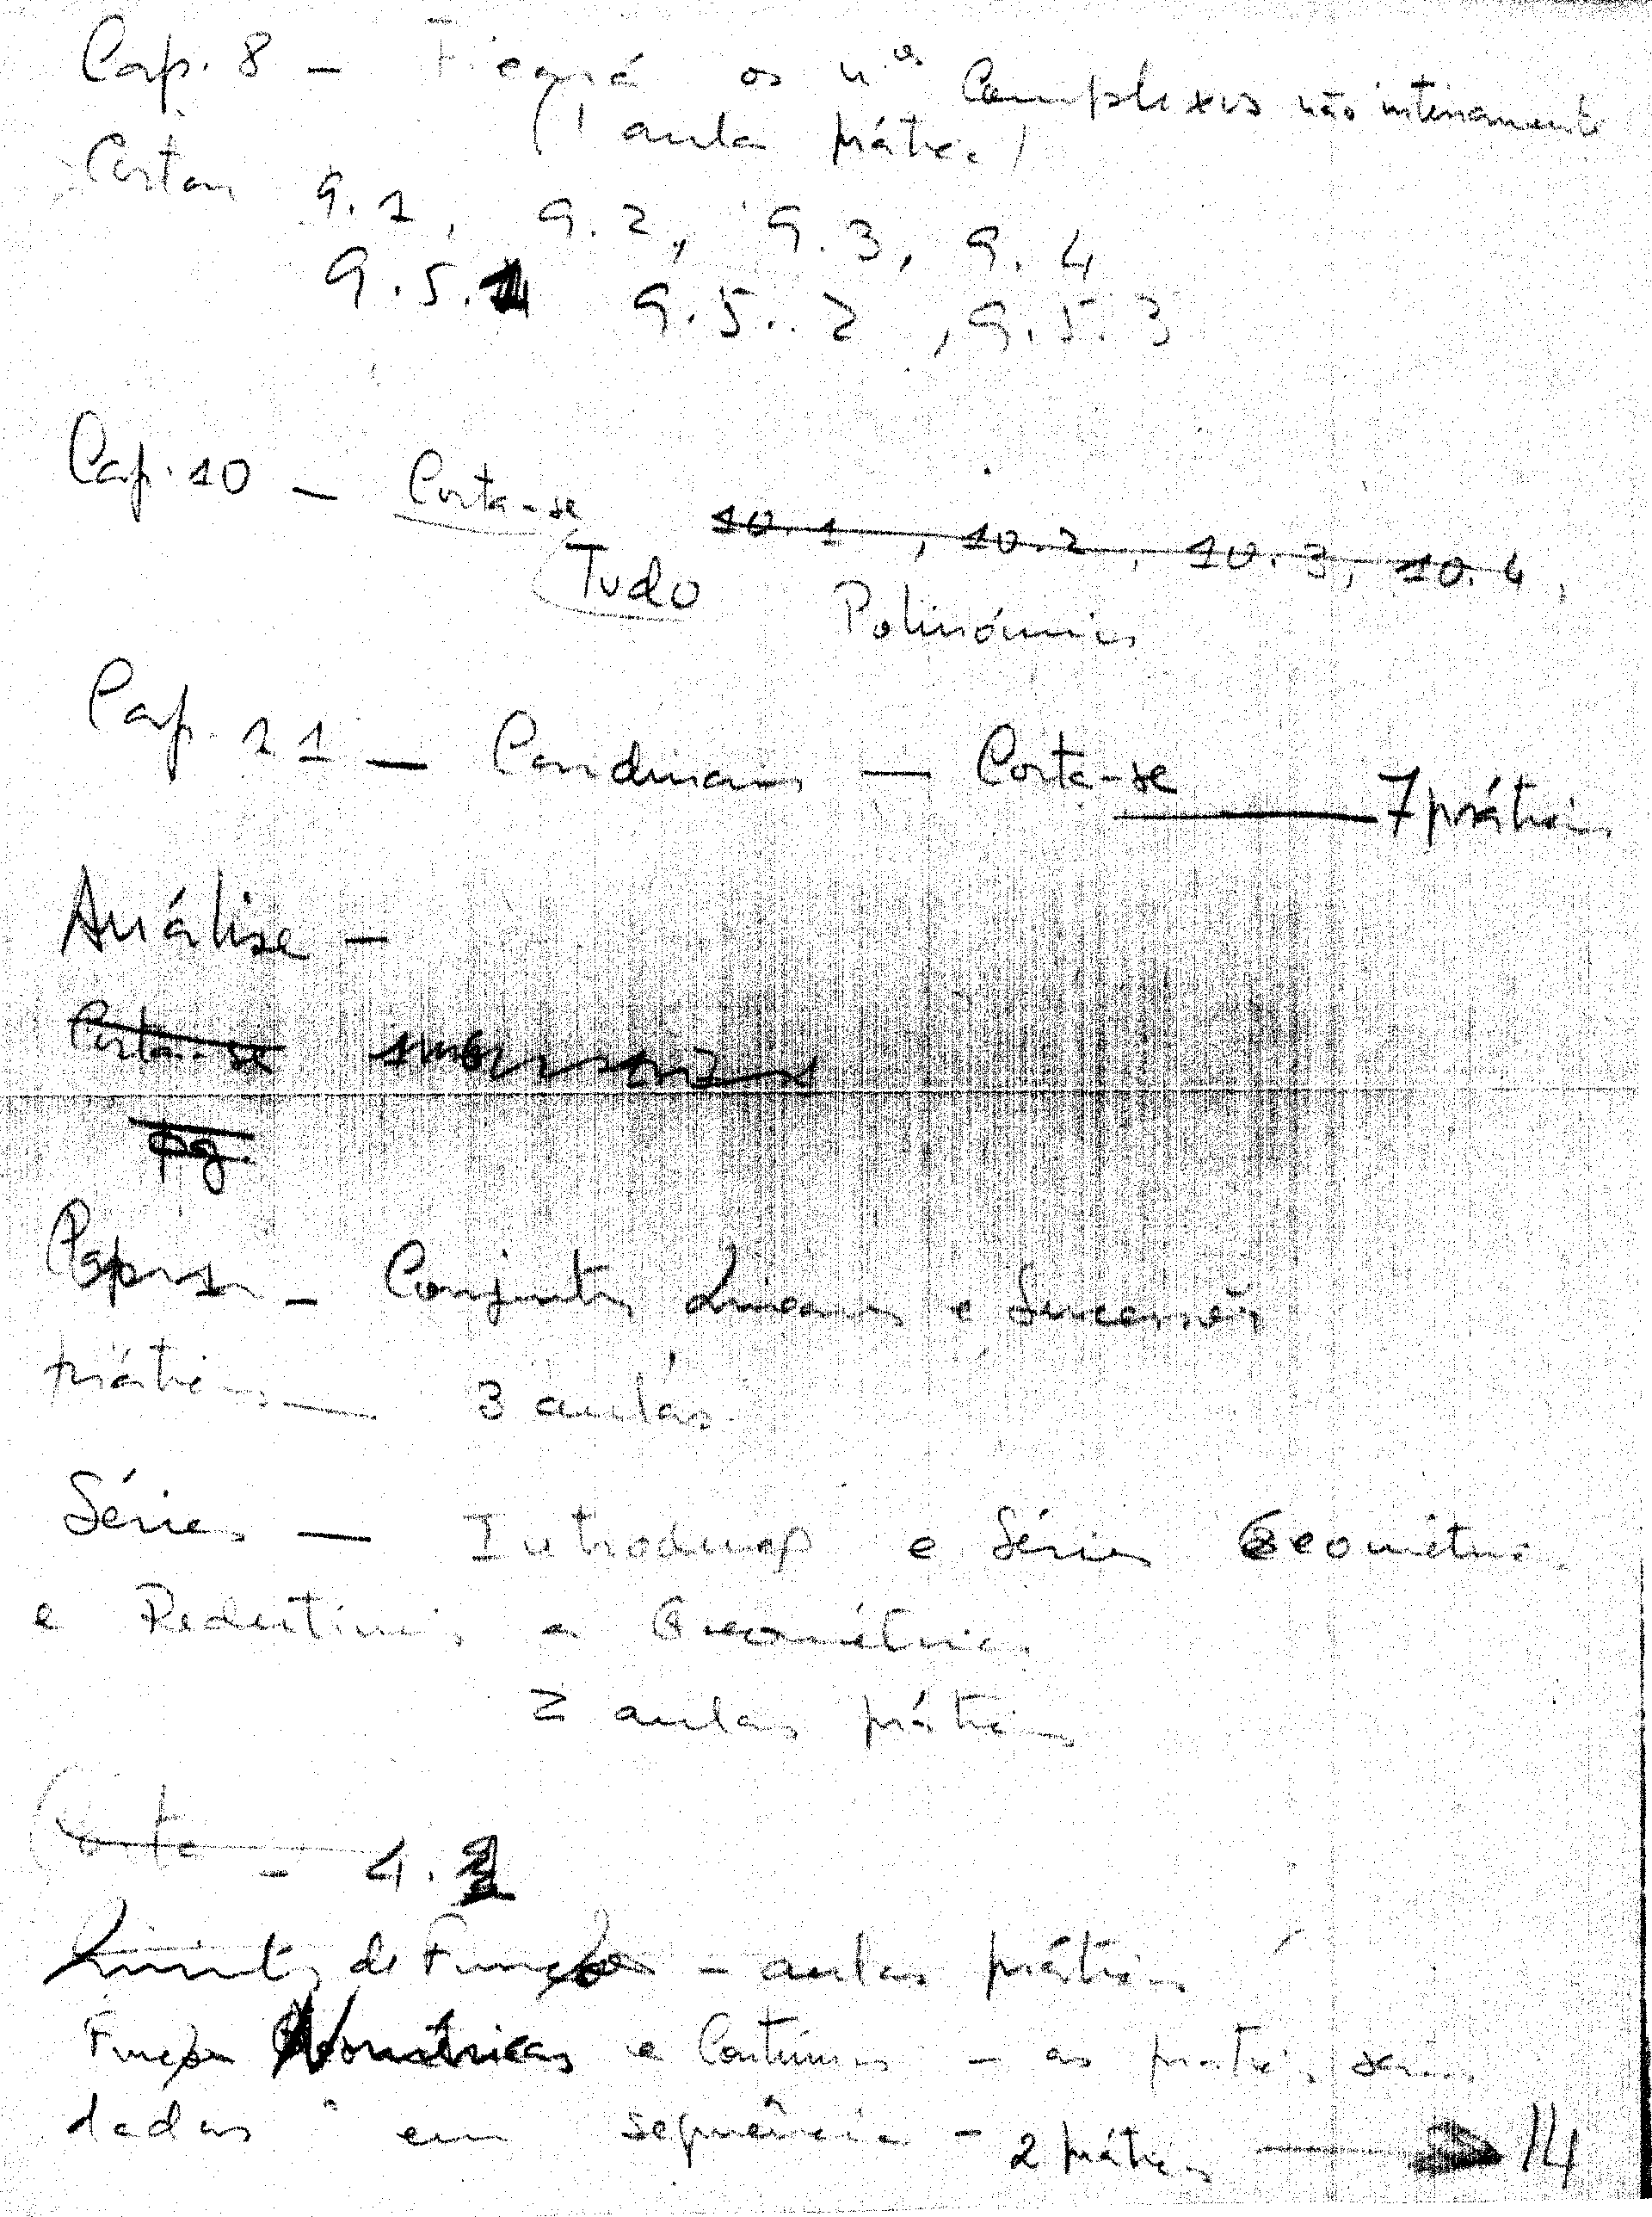 Cap. 8 - Ficará os n.os Complexos não inteiramente
(1 aula prática)
Cortar 9.1, 9.2, 9.3, 9.4
9.5.1 9.5.2, 9.5.3
Cap. 10 - Corta-se 10.1, 10.2, 10.3, 10.4,
Tudo Polinómios
Cap. 11 - Cardinais - Corta-se 7 práticas
Análise -
Corta-se
pg.
Cap. 1 - Conjuntos Lineares e Sucessões
práticas 3 aulas
Séries - Introdução e Séries Geométricas
e Redutíveis a Geométricas
2 aulas práticas
Corta - 4.2
Limites de Funções - aulas práticas
Funções e Contínuas - as práticas serão
dadas em sequência - 2 práticas 14